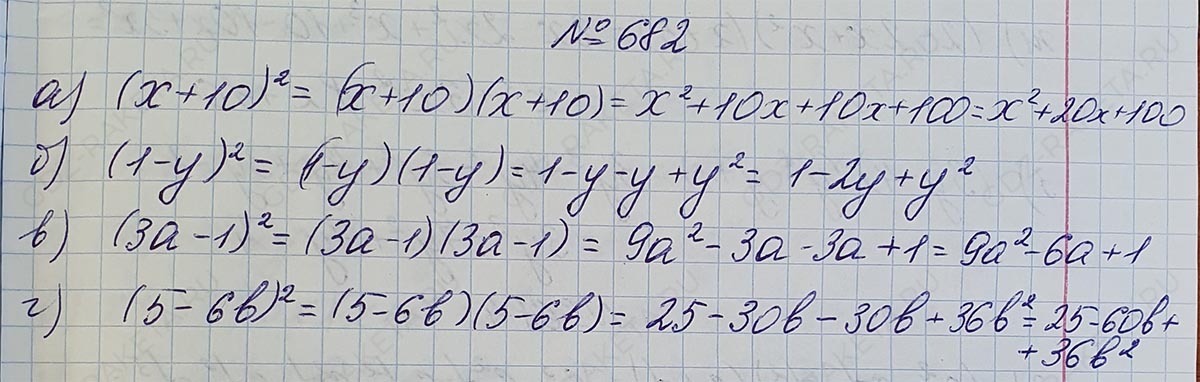 № 682
а) (x+10)² = (x+10)(x+10) = x²+10x+10x+100 = x²+20x+100
б) (1-y)² = (1-y)(1-y) = 1-y-y+y² = 1-2y+y²
в) (3a-1)² = (3a-1)(3a-1) = 9a²-3a-3a+1 = 9a²-6a+1
г) (5-6b)² = (5-6b)(5-6b) = 25-30b-30b+36b² = 25-60b+
+36b²